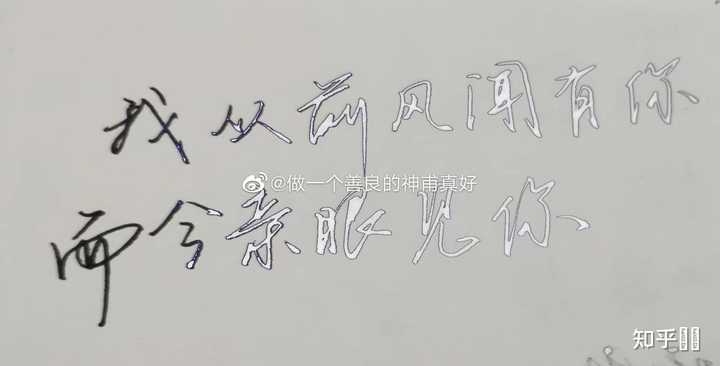 我从前风闻有你
@做一个善良的神甫真好
而今亲眼见你
知乎